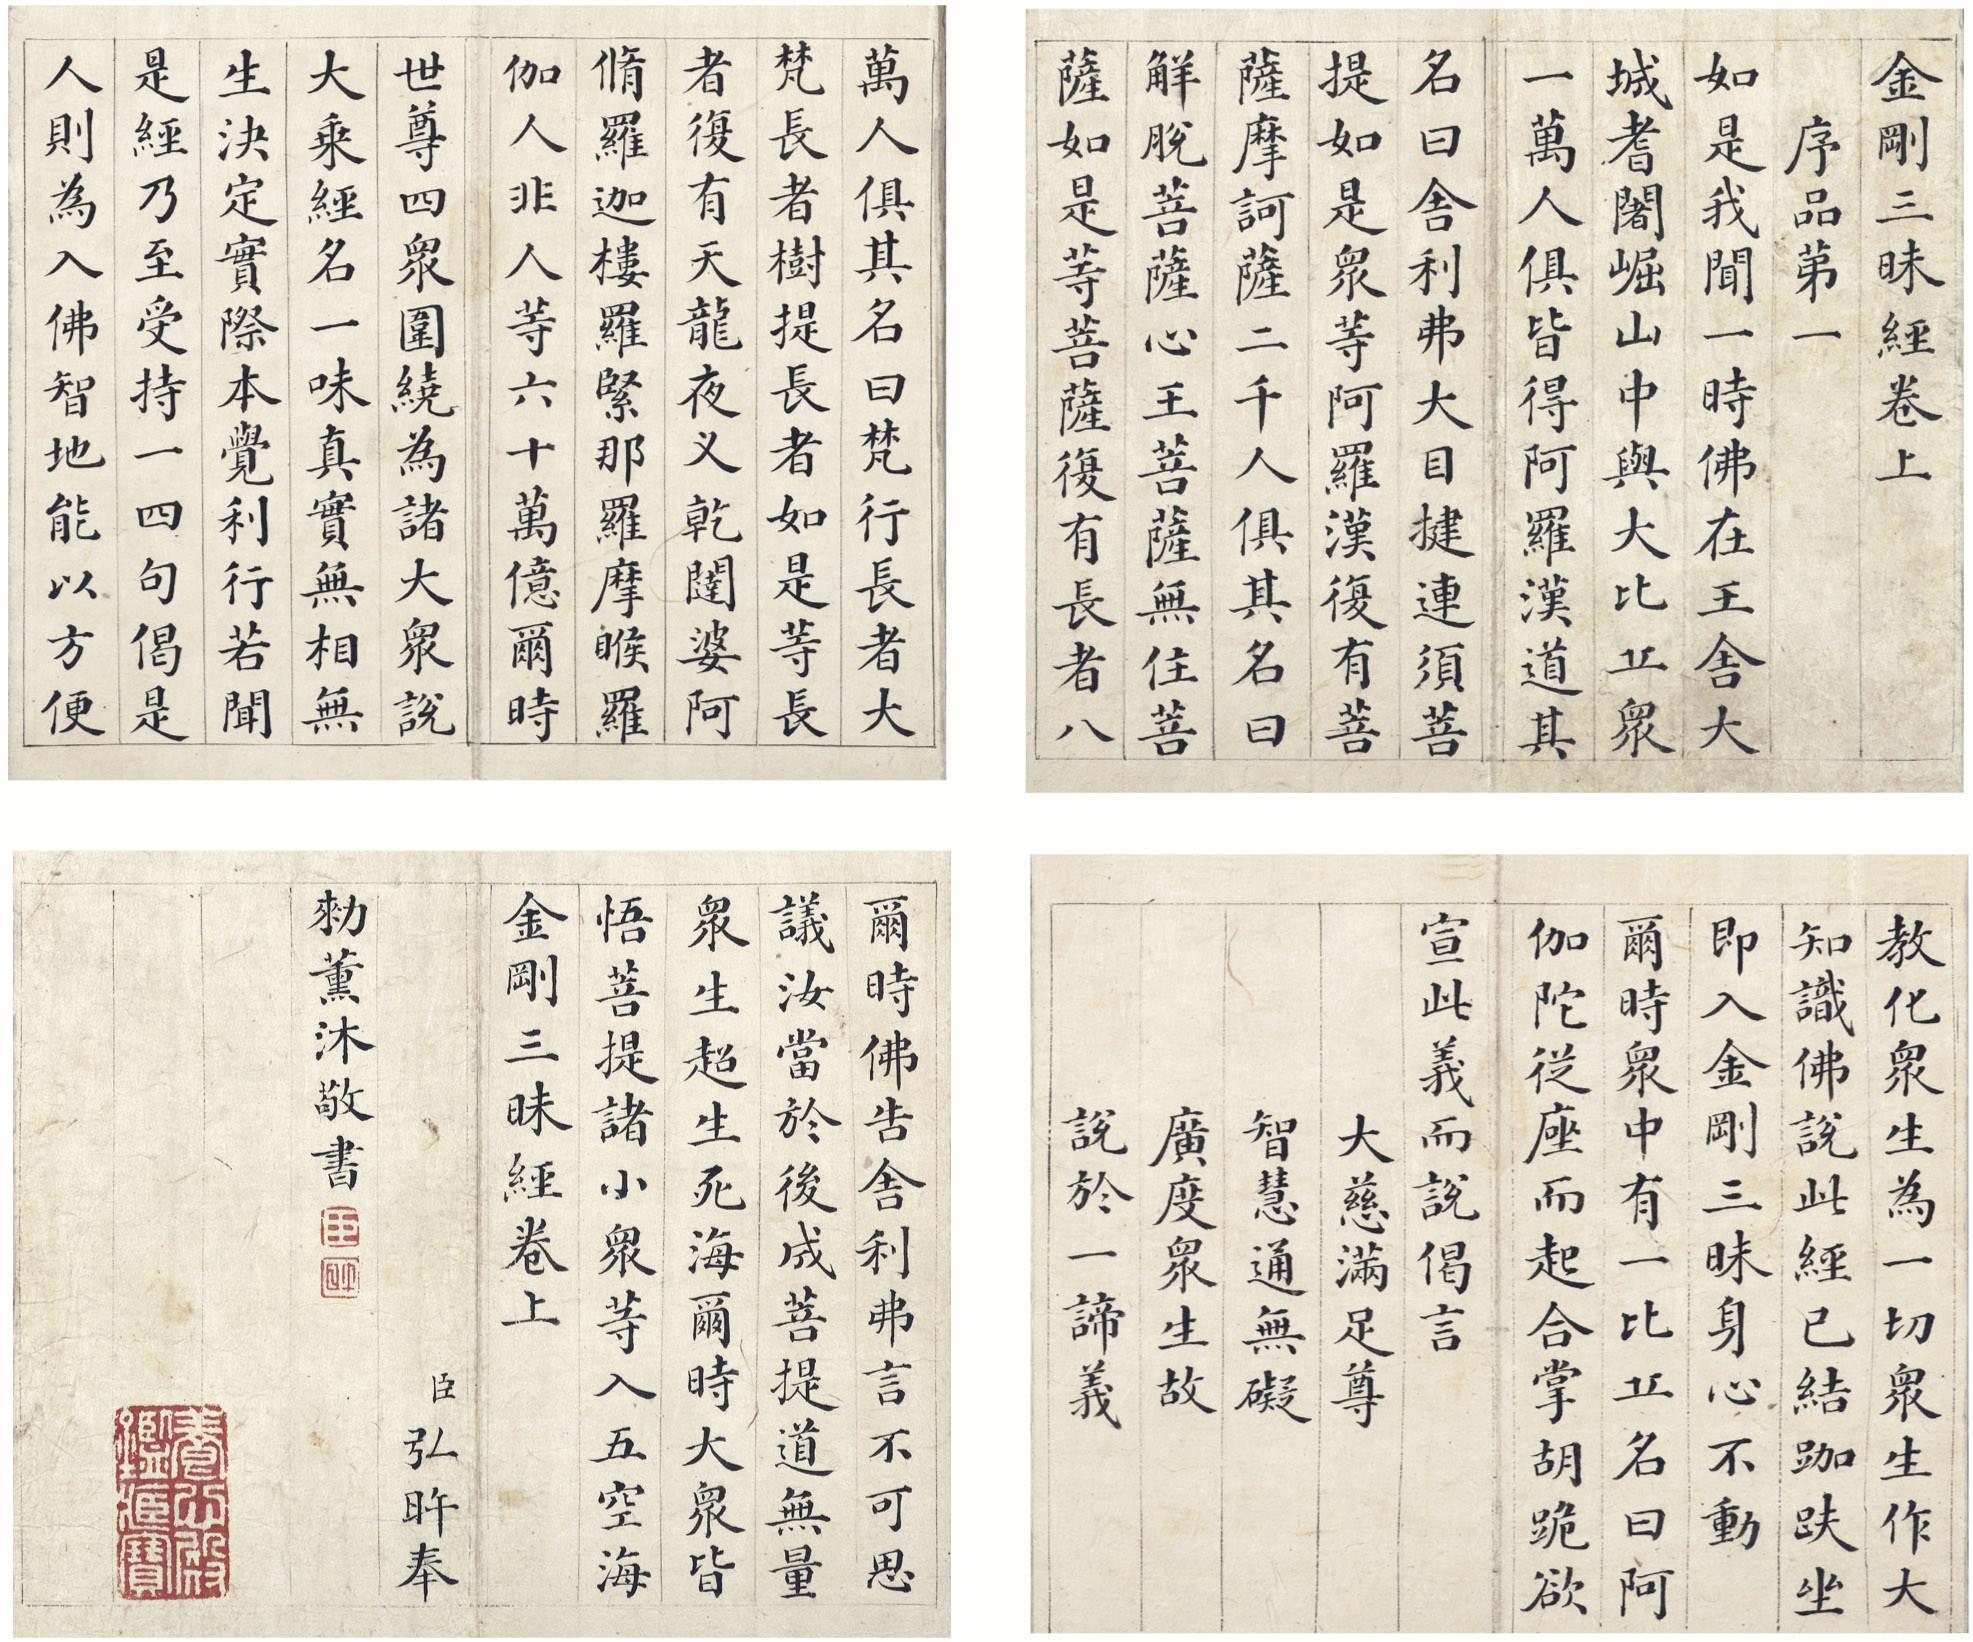 金剛三昧經卷上
序品第一
如是我聞一時佛在王舍大
城耆闍崛山中與大比丘眾
一萬人俱皆得阿羅漢道其
名曰舍利弗大目揵連須菩
提如是眾等阿羅漢復有菩
薩摩訶薩二千人俱其名曰
解脫菩薩心王菩薩無住菩
薩如是等菩薩復有長者八
萬人俱其名曰梵行長者大
梵長者樹提長者如是等長
者復有天龍夜叉乾闥婆阿
脩羅迦樓羅緊那羅摩睺羅
伽人非人等六十萬億爾時
世尊四眾圍繞為諸大眾說
大乘經名一味真實無相無
生決定實際本覺利行若聞
是經乃至受持一四句偈是
人則為入佛智地能以方便
教化眾生為一切眾生作大
知識佛說此經已結跏趺坐
即入金剛三昧身心不動
爾時眾中有一比丘名曰阿
伽陀從座而起合掌胡跪欲
宣此義而說偈言
大慈滿足尊
智慧通無礙
廣度眾生故
說於一諦義
爾時佛告舍利弗言不可思
議汝當於後成菩提道無量
眾生超生死海爾時大眾皆
悟菩提諸小眾等入五空海
金剛三昧經卷上
臣弘旿奉
勑薰沐敬書
臣
旿